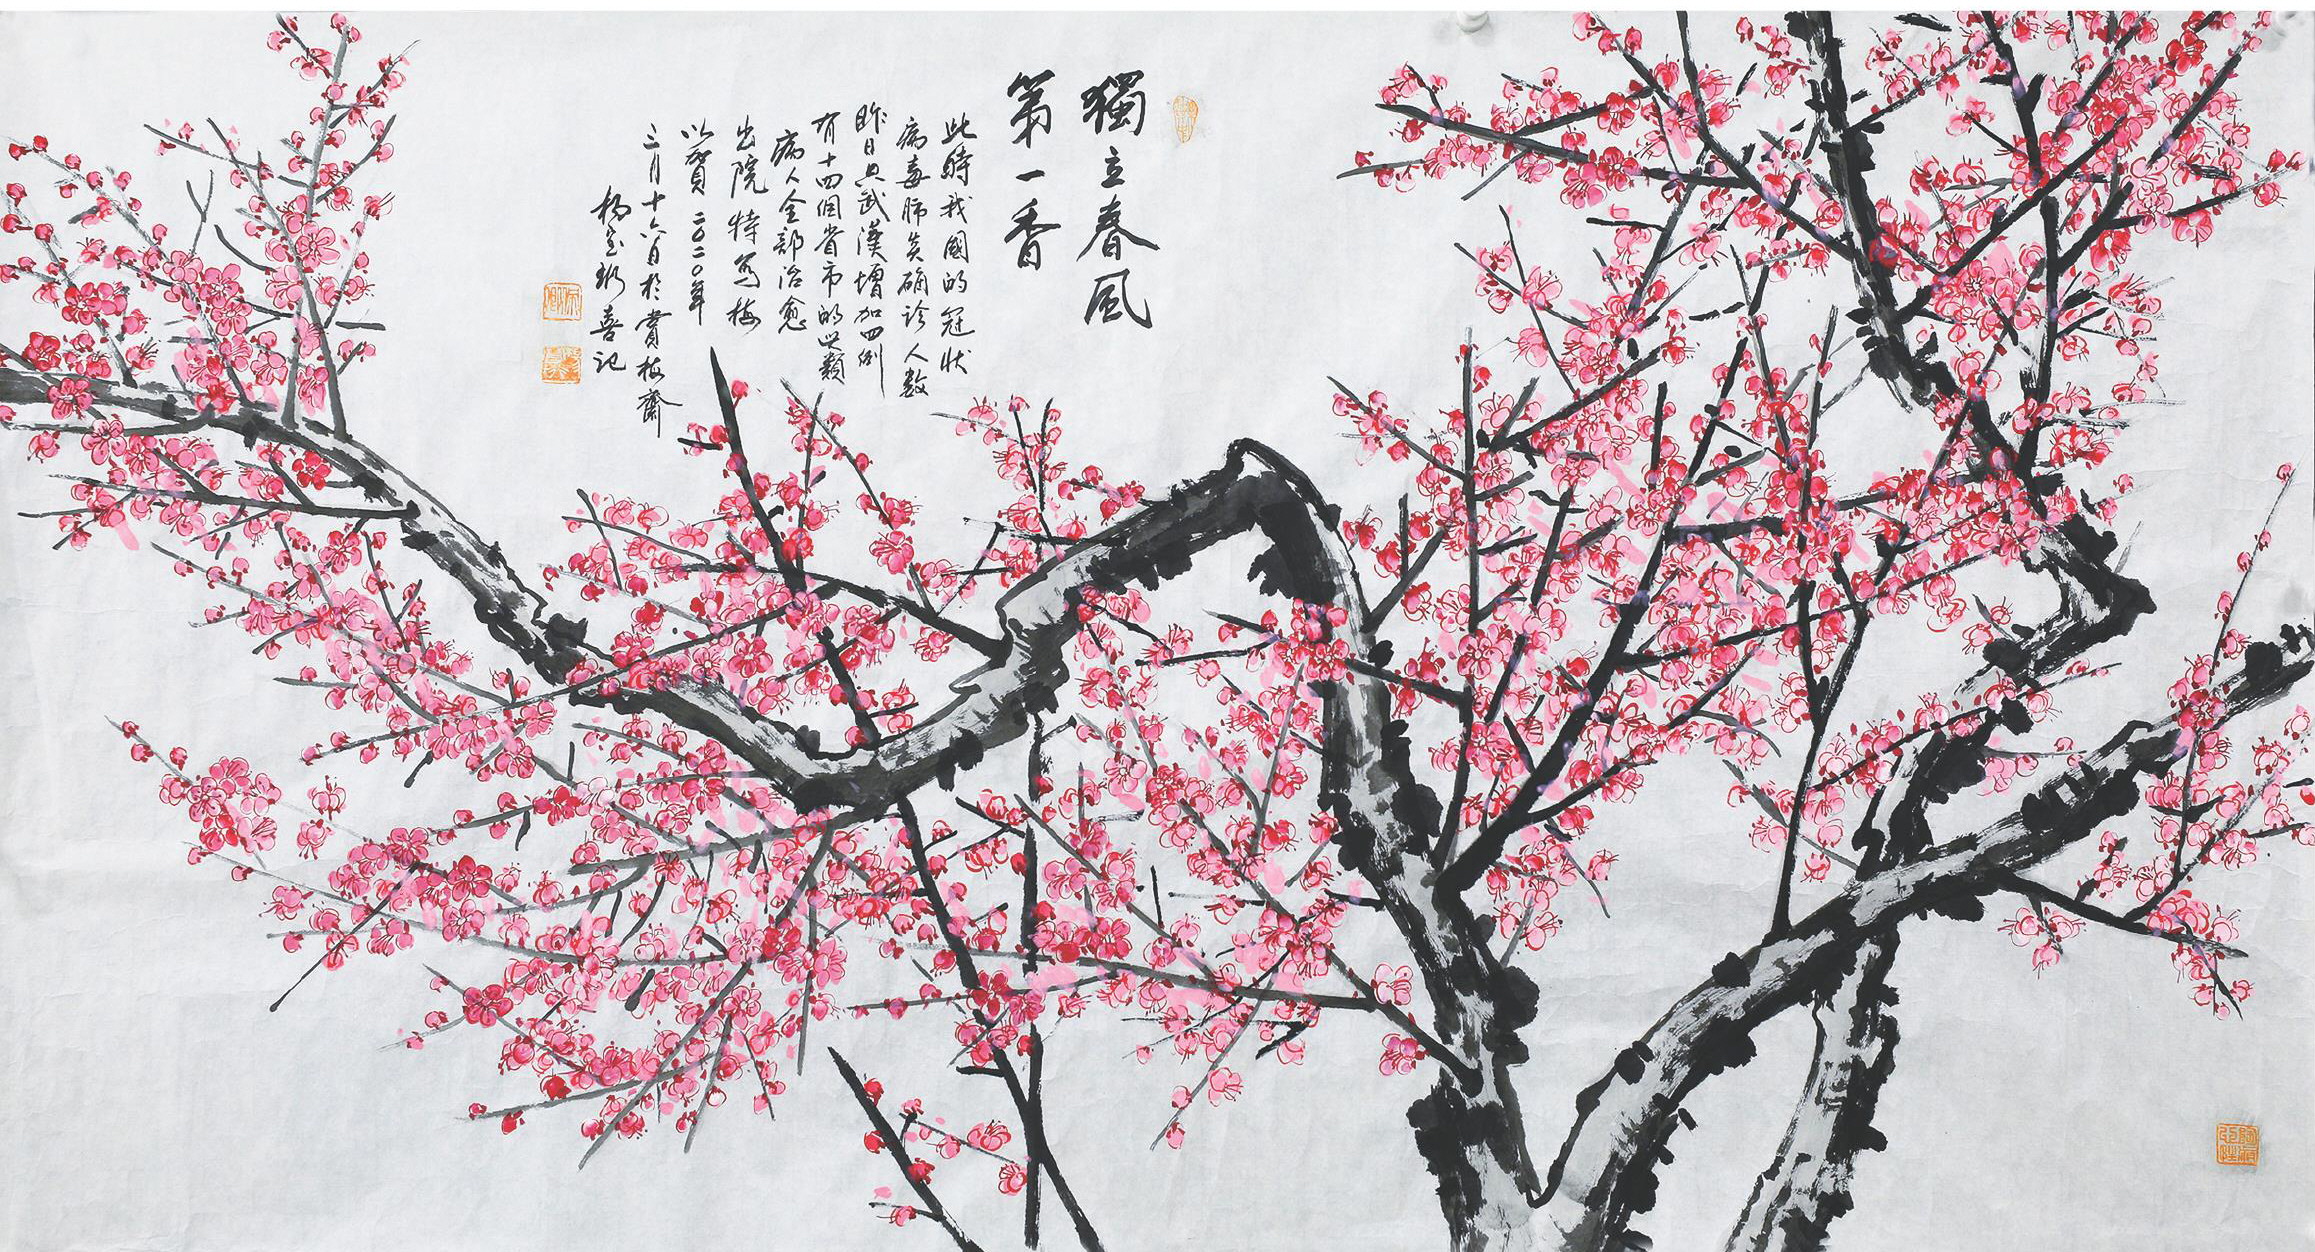 獨立春風
第一香
此時我國的冠狀
病毒肺炎确诊人数
昨日只武漢增加四例
有十四個省市的此類
病人全部治愈
出院特写梅
以賀二〇二〇年
三月十六日於賞梅齋
喜记